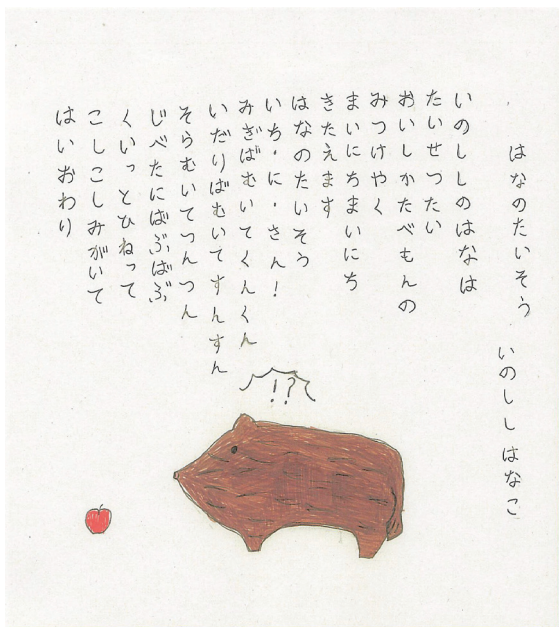 はなのたいそう　いのしし　はなこ
いのししのはなは
たいせつたい
おいしかたべもんの
みつけやく
まいにちまいにち
きたえます
はなのたいそう
いち・に・さん！
みぎばむいてくんくん
いだりばむいてすんすん
そらむいてつんつん
じべたにばぶばぶ
くいっとひねって
こしこしみがいて
はいおわり
!?